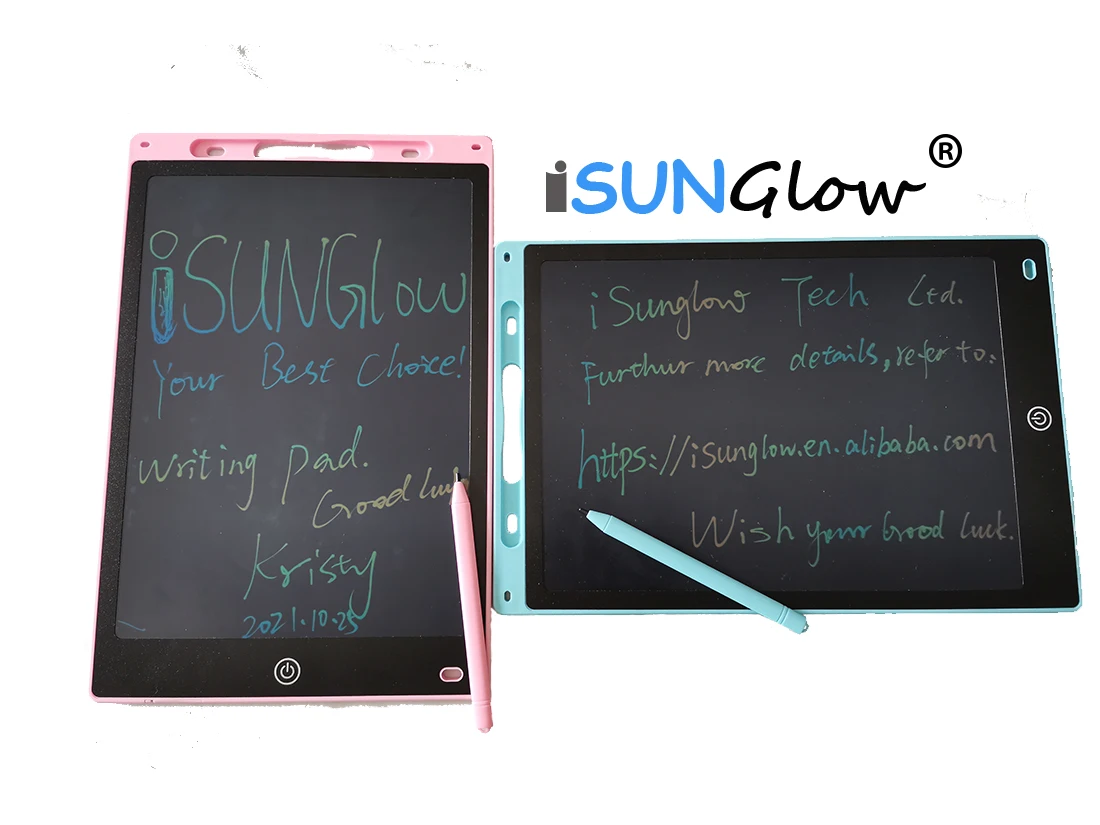 iSUNGlow®
iSUNGlow
Your Best Choice!
Writing Pad.
Good
Kristy
2021.10.25
iSunglow Tech Ltd.
Furthur more details, refer to:
https://isunglow.en.alibaba.com
Wish your Good luck.